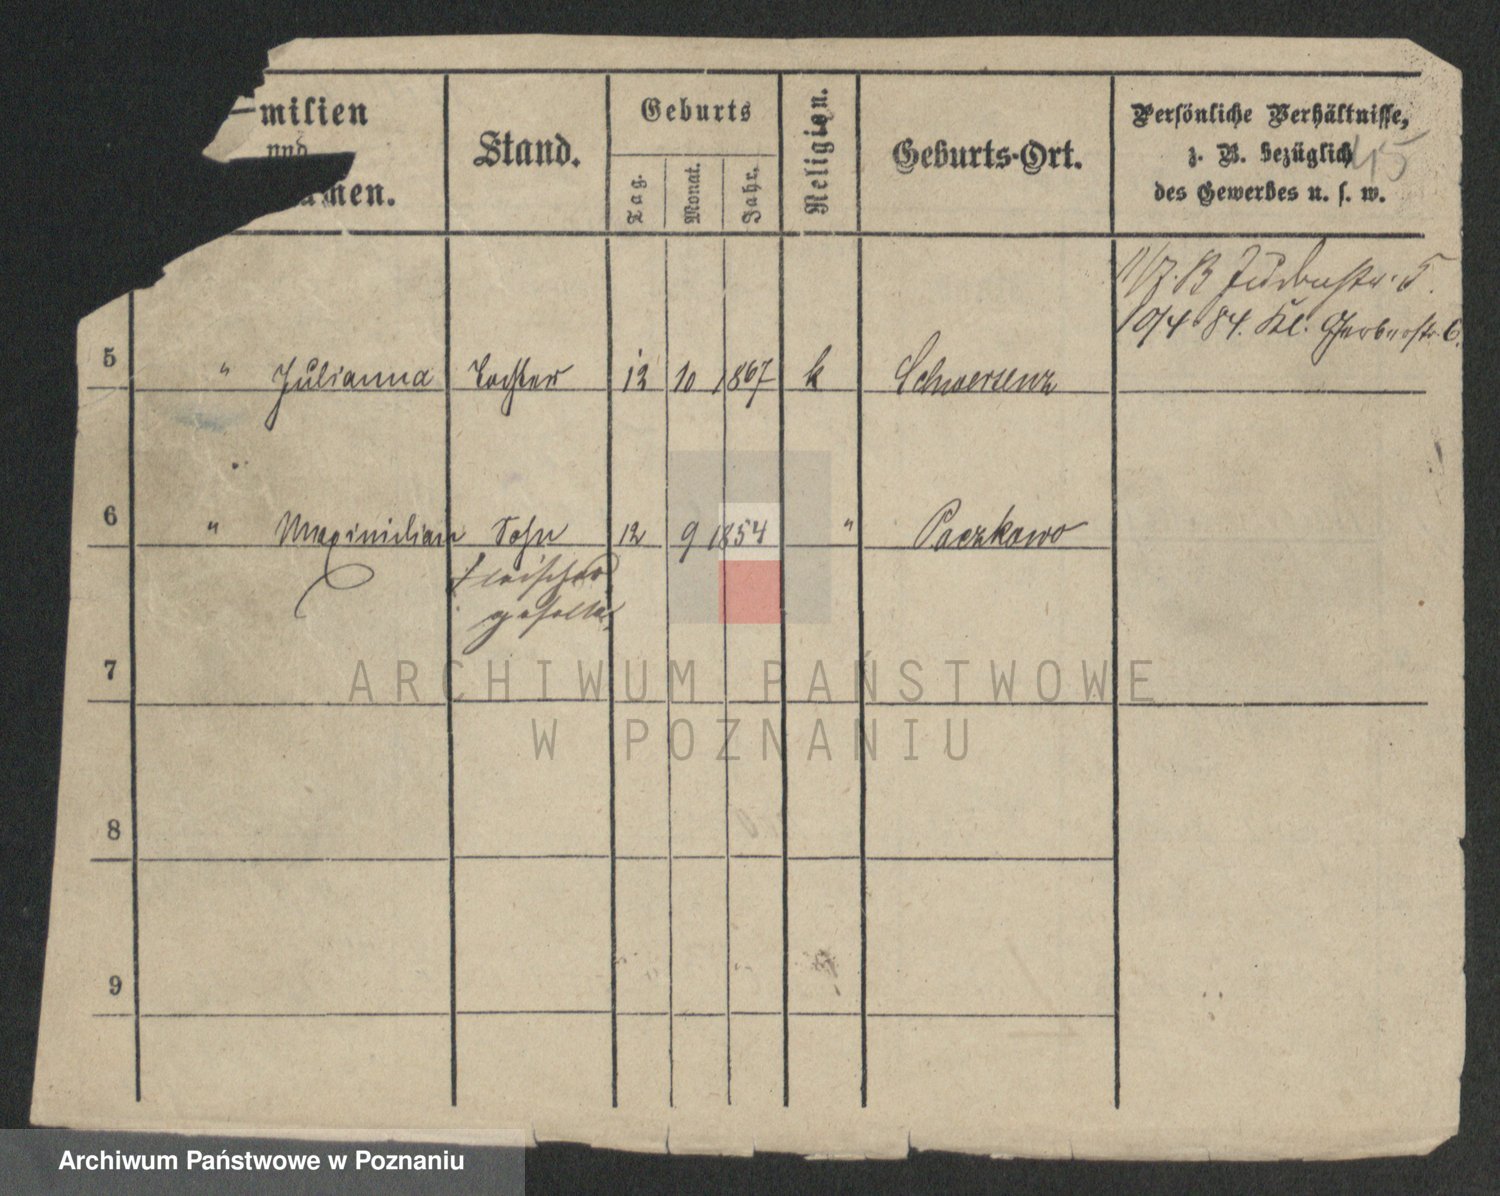 milien
und
amen.
Stand.
Geburts
Tag.
Monat.
Jahr.
Religion.
Geburts-Ort.
Persönliche Verhältnisse,
z. B. bezüglich
des Gewerbes u. s. w.
45
Judenstr. 5.
10/4 84. Kl. Gerberstr. 6.
5 " Julianna Tochter 12 10 1867 k Schwersenz
6 " Maximilian Sohn 12 9 1854 " Paczkowo
Fleischer
geselle
7
8
9
ARCHIWUM PAŃSTWOWE
W POZNANIU
Archiwum Państwowe w Poznaniu